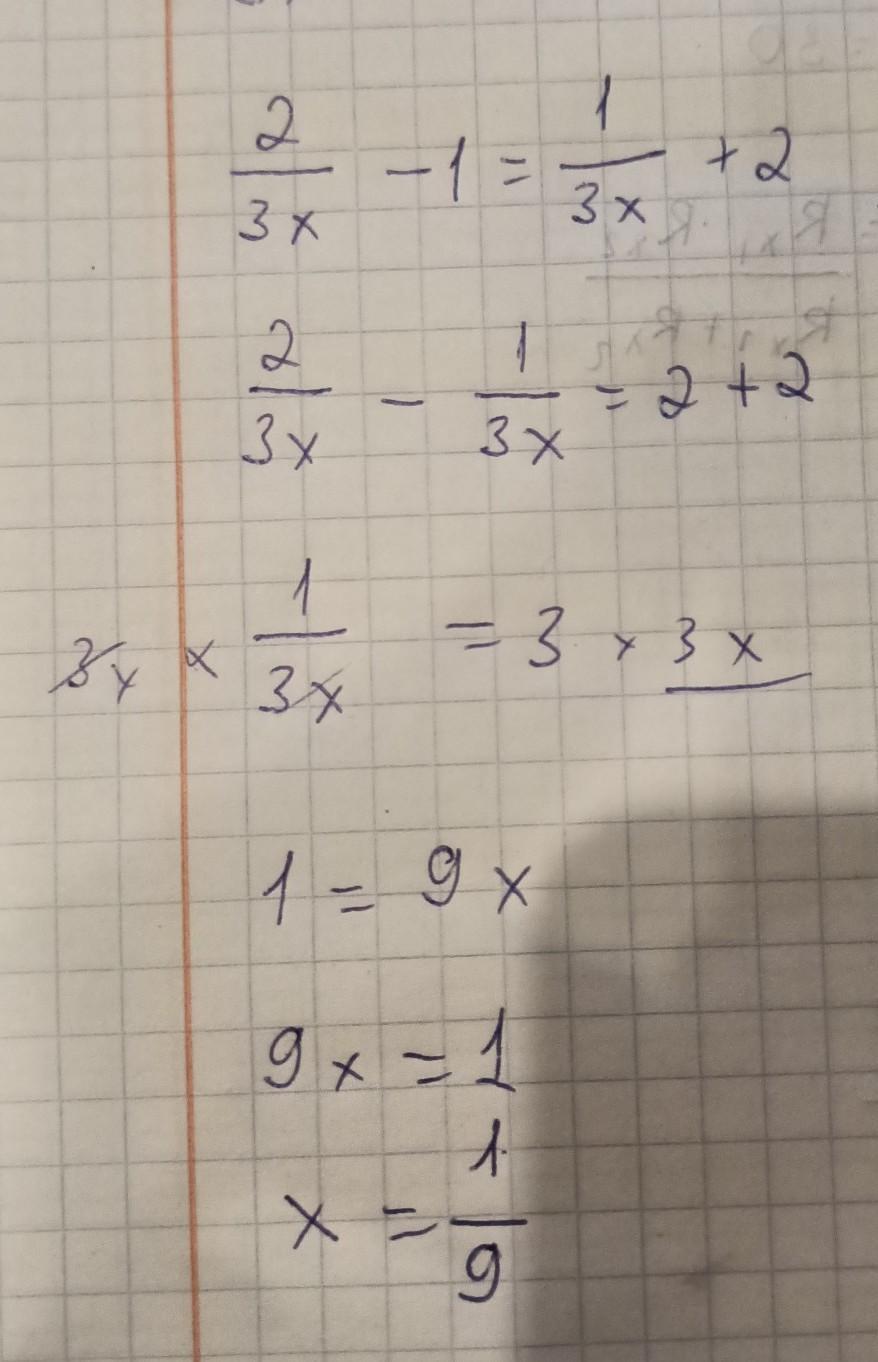 2/3x - 1 = 1/3x + 2
2/3x - 1/3x = 2 + 2
3x × 1/3x = 3 × 3x
1 = 9x
9x = 1
x = 1/9